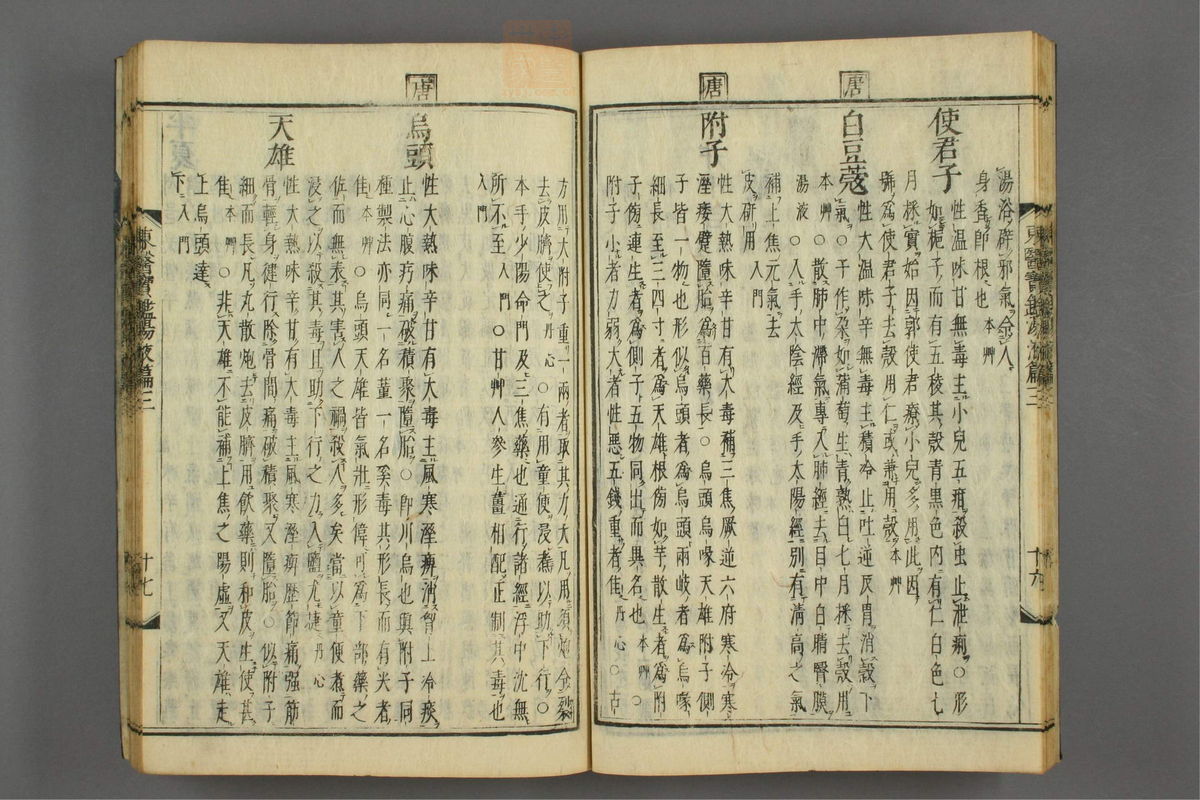 湯浴辟邪氣令人
身香即根也 本艸
使君子
性溫味甘無毒主小兒五疳殺虫止泄痢○形
如梔子而有五稜其殼青黑色內有仁白色七
月採實始因郭使君療小兒多用此因
號爲使君子去殼用仁或兼用殼 本艸
唐
白豆蔲
性大溫味辛無毒主積冷止吐逆反胃消穀下
氣○子作朶如蒲萄生青熟白七月採去殼用
本艸 ○散肺中滯氣專入肺經去目中白睛瞖膜
湯液 ○入手太陰經及手太陽經別有淸高之氣
補上焦元氣去
皮硏用 入門
唐
附子
性大熱味辛甘有大毒補三焦厥逆六府寒冷寒
溼痿躄墮胎爲百藥長○烏頭烏喙天雄附子側
子皆一物也形似烏頭者爲烏頭兩岐者爲烏喙
細長至三四寸者爲天雄根傍如芋散生者爲附
子傍連生者爲側子五物同出而異名也 本艸 ○
附子小者力弱大者性惡五錢重者佳 丹心 ○古
方用大附子重一兩者取其力大凡用須炮令裂
去皮臍使之 丹心 ○有用童便浸煮以助下行○
本手少陽命門及三焦藥也通行諸經浮中沈無
所不至 入門 ○甘艸人參生薑相配正制其毒也
入門
唐
烏頭
性大熱味辛甘有大毒主風寒溼痺消胷上冷痰
止心腹疗痛破積聚墮胎○即川烏也與附子同
種製法亦同一名菫一名奚毒其形長而有尖者
佳 本艸 ○烏頭天雄皆氣壯形偉可爲下部藥之
佐而無表其害人之禍殺人多矣當以童便煮而
浸之以殺其毒且助下行之力入鹽尤捷 丹心
天雄
性大熱味辛甘有大毒主風寒溼痺歷節痛强筋
骨輕身健行除骨間痛破積聚又墮胎○似附子
細而長凡丸散炮去皮臍用飮藥則和皮生使甚
佳 本艸 ○非天雄不能補上焦之陽虛又天雄走
上烏頭達
下 入門
東醫寶鑑湯液篇三
十六
東醫寶鑑湯液篇三
十七